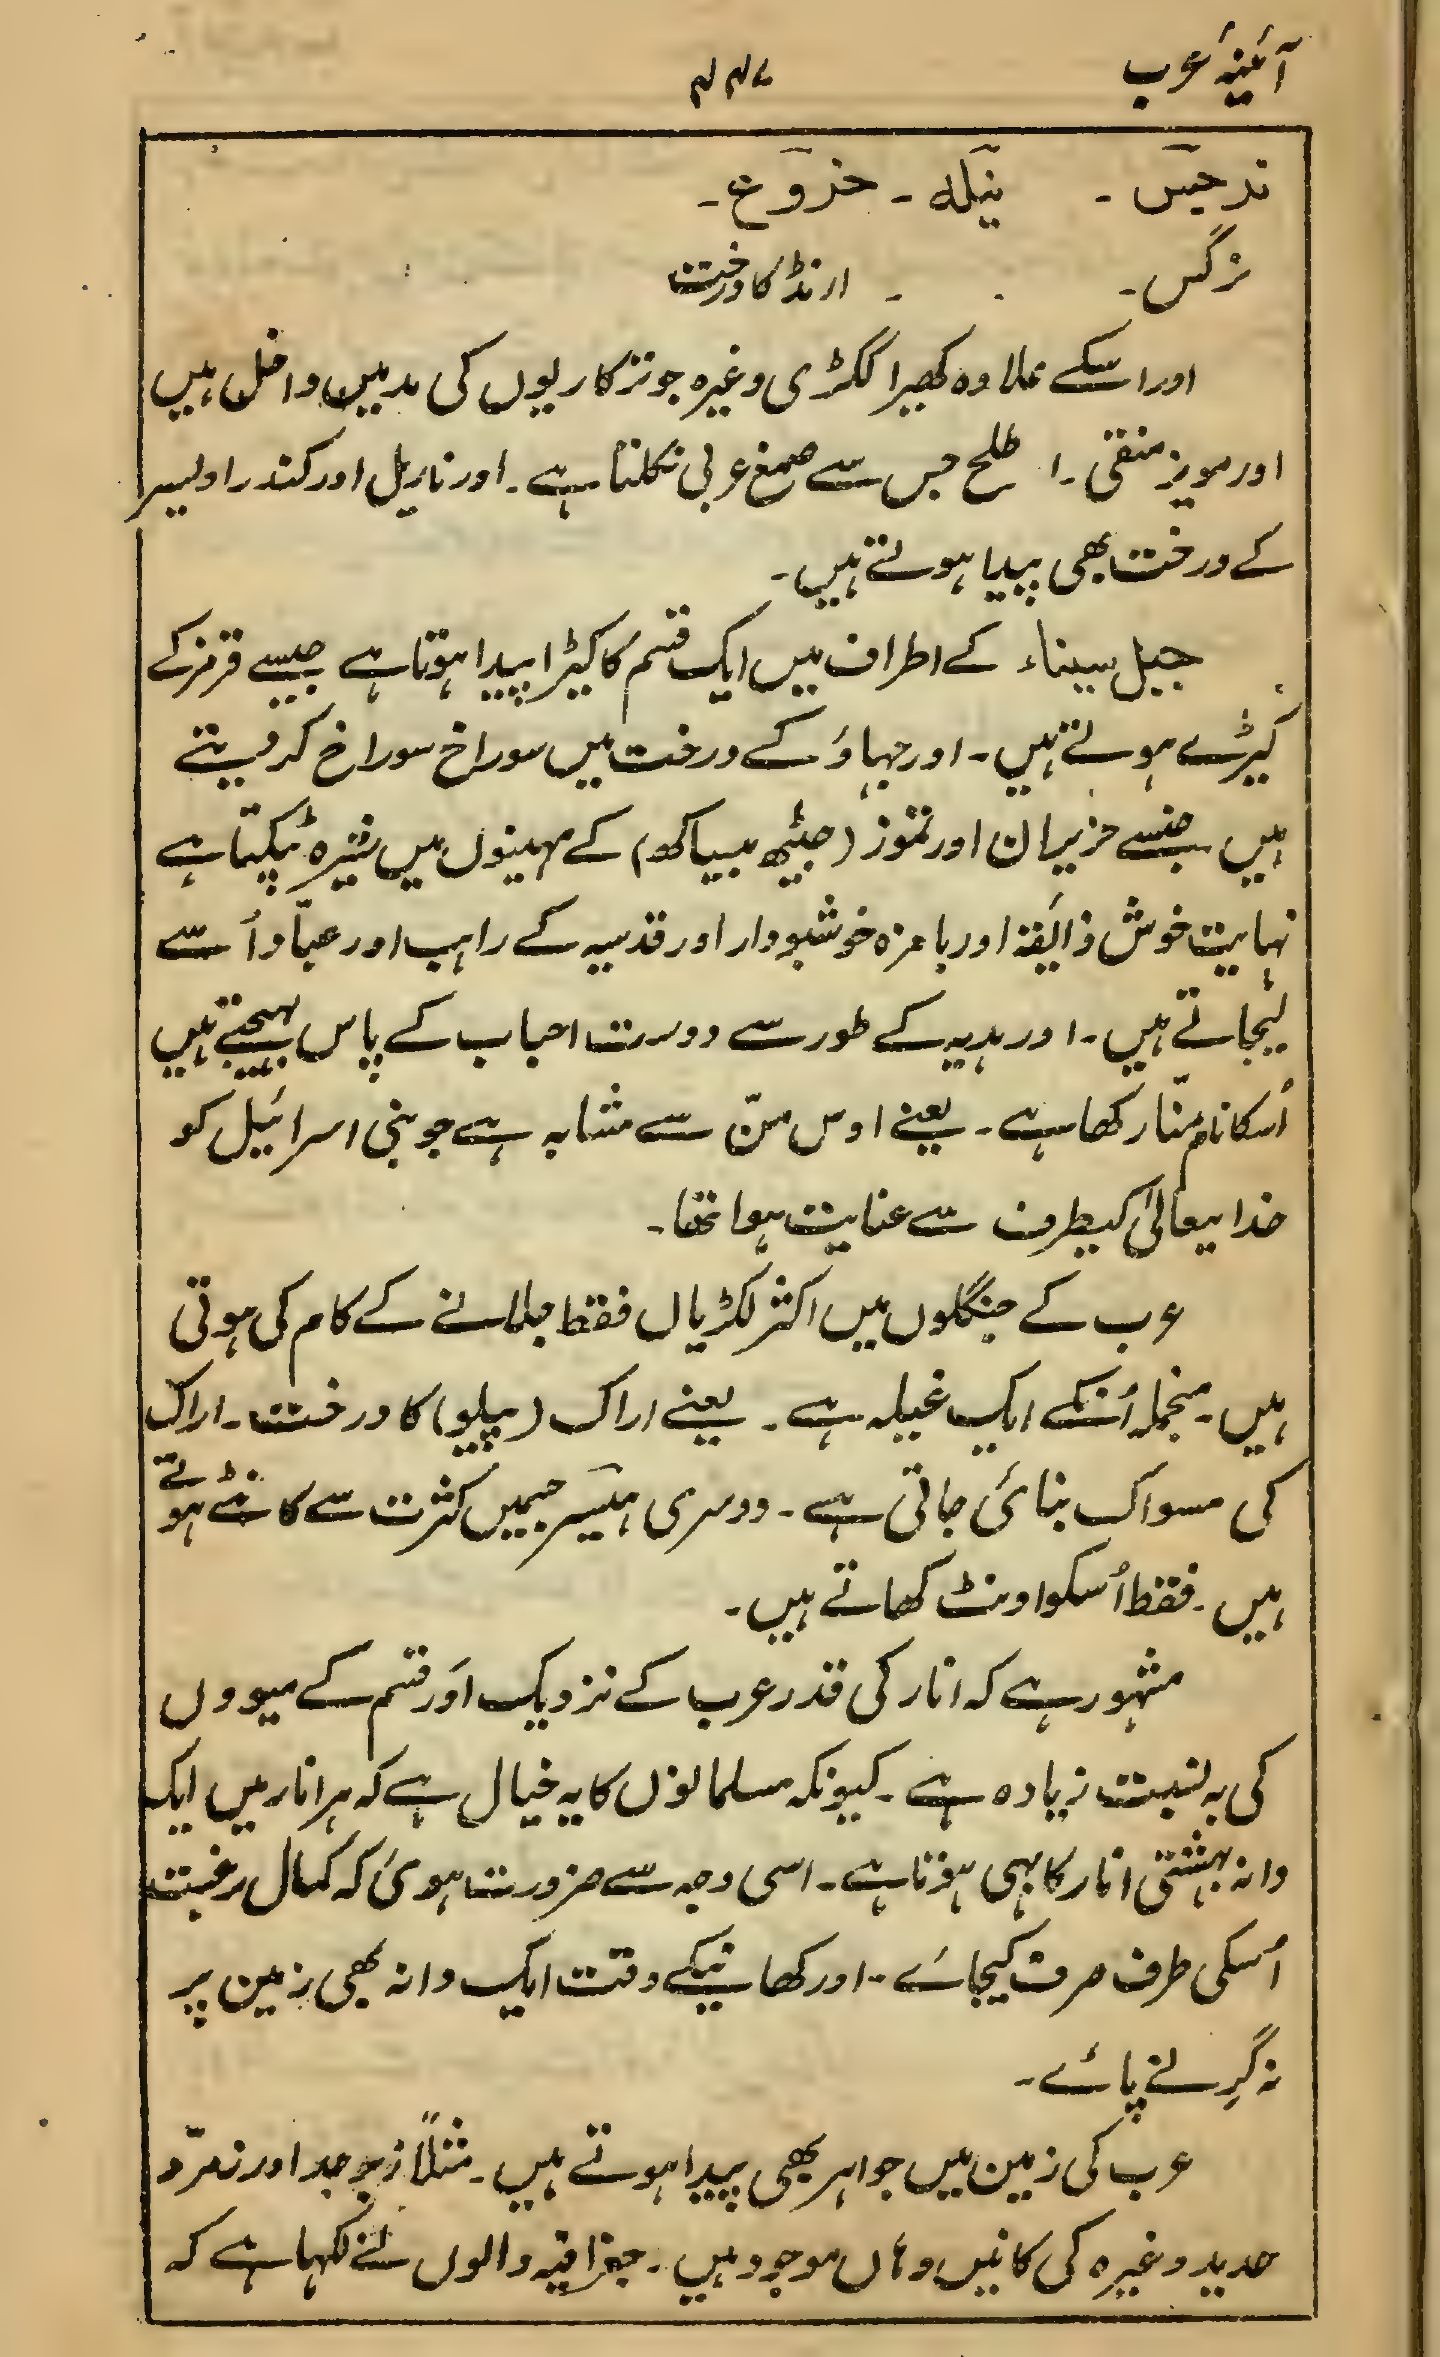 آئینۂ عرب
۴۴۷
ندجس ۔ نیلہ ۔ خروع ۔
نرگس ۔ ۔ ۔ ارنڈ کا درخت
اور اسکے علاوہ کھیرا ککڑی وغیرہ جو ترکاریوں کی مد میں داخل ہیں
اور مویز منقی ۔ ا طلح جس سے صمغ عربی نکلتا ہے ۔ اور ناریل اور کندر اولیسر
کے درخت بھی پیدا ہوتے ہیں ۔
جبل سیناء کے اطراف میں ایک قسم کا کیڑا پیدا ہوتا ہے جیسے قرمز کے
کیڑے ہوتے ہیں ۔ اور جہاؤ کے درخت میں سوراخ سوراخ کر دیتے
ہیں جنسے حزیران اور تموز (جیٹھ بیساکھ) کے مہینوں میں شیرہ ٹپکتا ہے
نہایت خوش ذائقہ اور بامزہ خوشبودار اور قدسیہ کے راہب اور عبّاد اُسے
لیجاتے ہیں ۔ اور ہدیہ کے طور سے دوست احباب کے پاس بہیجتے ہیں
اُسکا نام منّا رکھا ہے ۔ یعنے اوس منّ سے مشابہ ہے جو بنی اسرائیل کو
خدا یتعالیٰ کیطرف سے عنایت ہوا تھا ۔
عرب کے جنگلوں میں اکثر لکڑیاں فقط جلانے کے کام کی ہوتی
ہیں ۔ منجملہ اُنکے ایک غیلہ ہے ۔ یعنے اراک (پیلو) کا درخت ۔ اراک
کی مسواک بنائی جاتی ہے ۔ دوسری ہیَسر جسمیں کثرت سے کانٹے ہوتے
ہیں ۔ فقط اُسکو اونٹ کھاتے ہیں ۔
مشہور ہے کہ انار کی قدر عرب کے نزدیک اَور قسم کے میووں
کی بہ نسبت زیادہ ہے ۔ کیونکہ مسلمانوں کا یہ خیال ہے کہ ہر انار میں ایک
دانہ بہشتی انار کا بہی ہوتا ہے ۔ اسی وجہ سے ضرورت ہوئی کہ کمال رغبت
اُسکی طرف صرف کیجائے ۔ اور کھانیکے وقت ایک دانہ بھی زمین پر
نہ گرنے پائے ۔
عرب کی زمین میں جواہر بھی پیدا ہوتے ہیں ۔ مثلاً زبرجد اور زمرّد
حدید وغیرہ کی کانیں وہاں موجود ہیں ۔ جغرافیہ والوں نے لکہا ہے کہ